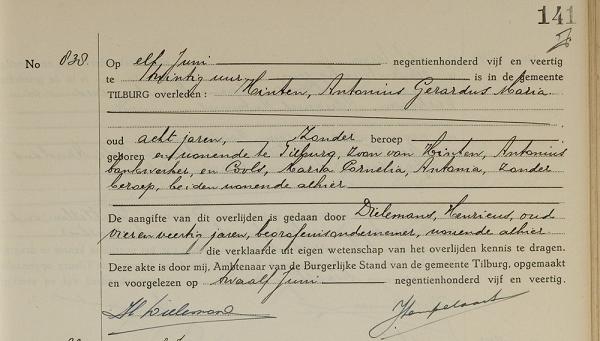 141
No 838. Op elf Juni negentienhonderd vijf en veertig
te twintig uur is in de gemeente
TILBURG overleden: Hinten, Antonius Gerardus Maria
oud acht jaren, zonder beroep
geboren en wonende te Tilburg, zoon van Hinten, Antonius
bankwerker, en Cools, Maria Cornelia, Antonia, zonder
beroep, beiden wonende alhier
De aangifte van dit overlijden is gedaan door Dielemans, Henricus, oud
vier en veertig jaren, begrafenisondernemer, wonende alhier
die verklaarde uit eigen wetenschap van het overlijden kennis te dragen.
Deze akte is door mij, Ambtenaar van de Burgerlijke Stand van de gemeente Tilburg, opgemaakt
en voorgelezen op twaalf Juni negentienhonderd vijf en veertig.
H Dielemans